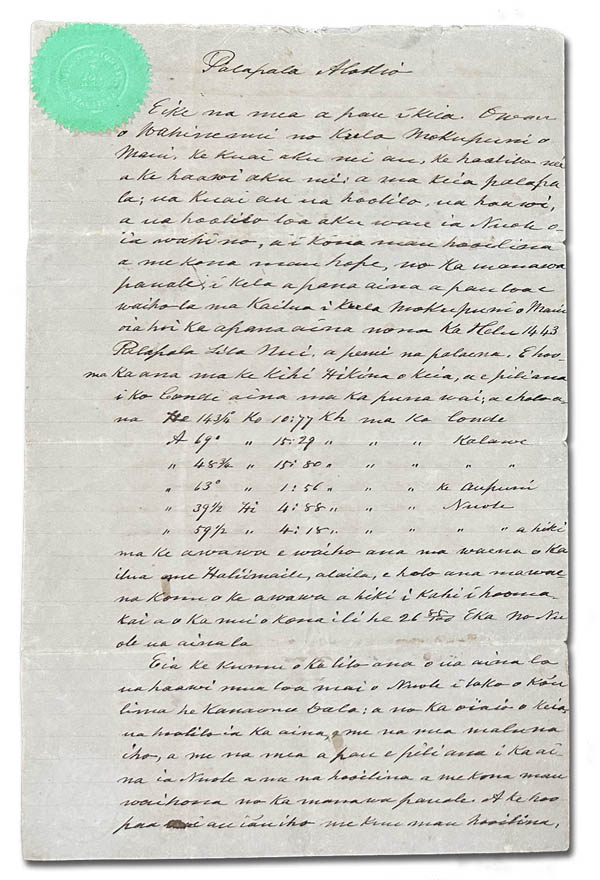 Palapala Alodio
Eike na mea a pau i keia. O wau
o Wahinenui no Kula Mokupuni o
Maui, ke kuai aku nei au, ke hoolilo nei
a ke haawi aku nei: a ma keia palapa
la; ua kuai au ua hoolilo, ua haawi,
a ua hoolilo loa aku wau ia Nuole o-
ia wahi no, a i kona mau hooilina
a me kona mau hope, no ka manawa
pauole; i kela apana aina a pau loa e
waiho la ma Kailua i Kula Mokupuni o Maui
oia hoi ka apana aina nona ka Helu 1443
Palapala Sila Nui, a penei na palena. E hoo-
maka ana ma ke kihi Hikina o keia, a e pili ana
i ko Conde aina ma ka punawai; a e holo a-
na He 143¼ Ko 10:77 Kh ma ko Conde
A 69° " 15:29 " " " Kalawe
" 48¾ " 15:80 " " " "
" 63° " 1:56 " " ke Aupuni
" 39½ Hi 4:88 " " Nuole
" 59½ " 4:18 " " " " a hiki
ma ke awawa e waiho ana ma waena o Ka
ilua a me Haliimaile, alaila, e holo ana mawae
na konu o ke awawa a hiki i kahi i hooma
kai a o ka nui o kona ili he 26 88/100 Eka no Nu
ole ua aina la
Eia ke kumu o ka lilo ana o ua aina la
ua haawi mua loa mai o Nuole i loko o ko'u
lima he Kanaono Dala; a no ka oiaio o keia
ua hoolilo ia ka aina, a me na mea maluna
iho, a me na mea a pau e pili ana i ka ai-
na ia Nuole a na na hooilina a me kona mau
waihona no ka manawa pauole. A ke hoo
paa nei au ia'u iho me kuu mau hooilina,